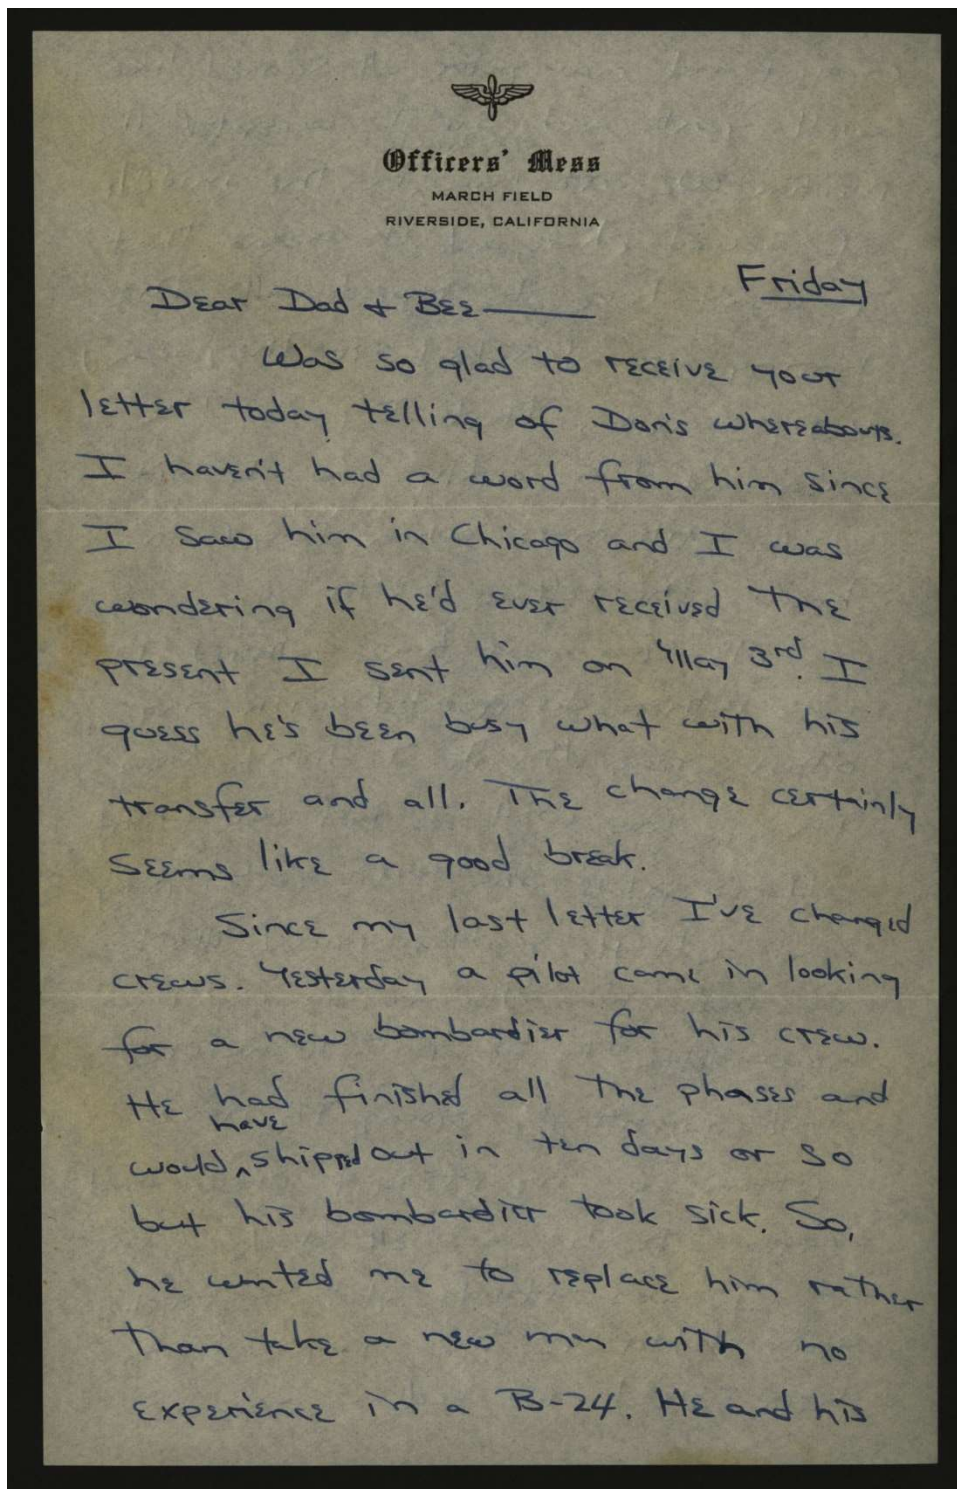 Officers' Mess
MARCH FIELD
RIVERSIDE, CALIFORNIA
Friday
Dear Dad + Bee
Was so glad to receive your
letter today telling of Don's whereabouts.
I haven't had a word from him since
I saw him in Chicago and I was
wondering if he'd ever received the
present I sent him on May 3rd. I
guess he's been busy what with his
transfer and all. The change certainly
seems like a good break.
Since my last letter I've changed
crews. Yesterday a pilot came in looking
for a new bombardier for his crew.
He had finished all the phases and
would have shipped out in ten days or so
but his bombardier took sick. So,
he wanted me to replace him rather
than take a new man with no
experience in a B-24. He and his